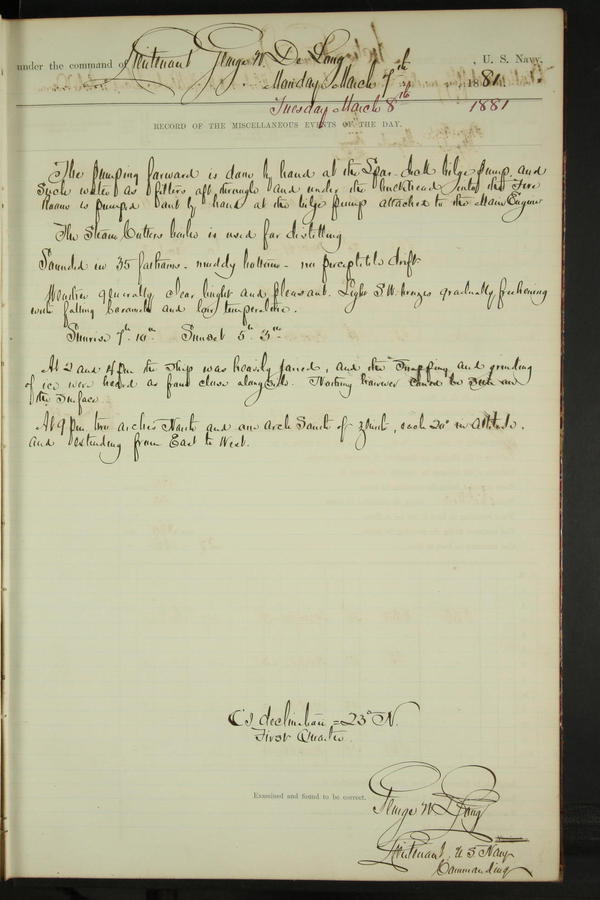 under the command of Lieutenant George W. De Long, U. S. Navy.
Monday March 7th 1881.
Tuesday March 8th 1881
RECORD OF THE MISCELLANEOUS EVENTS OF THE DAY.
The pumping forward is done by hand at the Spar-deck bilge pump, and
such water as filters aft through and under the bulkhead into the Fire
Room is pumped out by hand at the bilge pump attached to the Main Engine
The Steam Cutters boiler is used for distilling
Sounded in 35 fathoms - muddy bottom - no perceptible drift
Weather generally clear bright and pleasant. Light S.W. breezes gradually freshening
with falling barometer and low temperature.
Sunrise 7h 10m Sunset 5h 3m
At 2 and 4 pm the ship was heavily jarred, and the snapping and grinding
of ice were heard as from close alongside. Nothing however could be seen on
the surface.
At 9 pm two arches North and one arch South of zenith, each 20° in altitude,
and extending from East to West.
C's declination = 23° N.
First Quarter
Examined and found to be correct.
George W. De Long
Lieutenant, U S Navy
Commanding